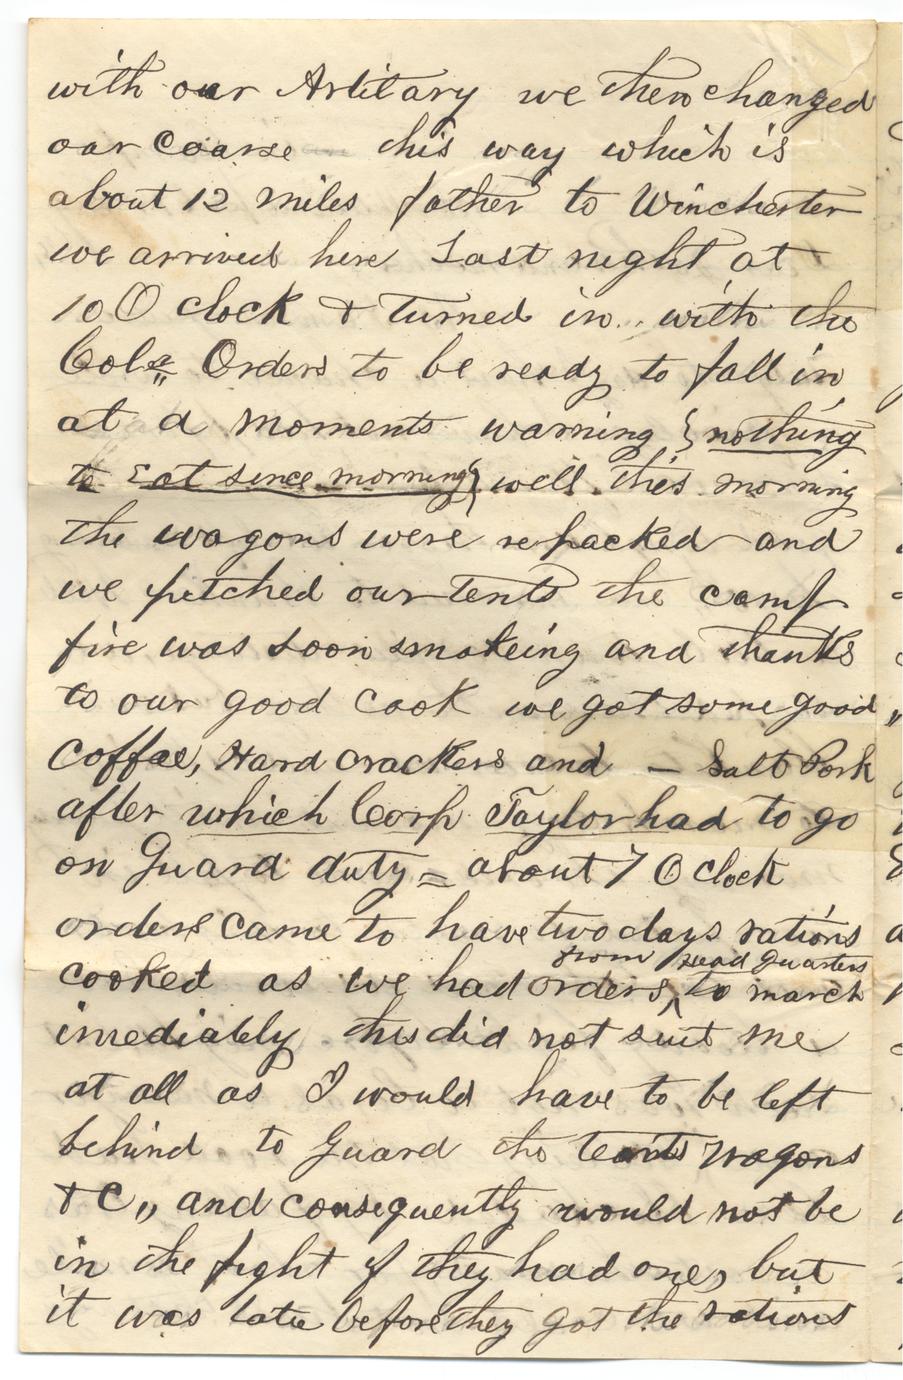 with our Artilary we then changed
our coarse this way which is
about 12 miles father to Winchester
we arrived here Last night at
10 O clock & turned in with the
Cols Orders to be ready to fall in
at a moments warning { nothing
to Eat since morning } well this morning
the wagons were repacked and
we pitched our tents the camp
fire was soon smokeing and thanks
to our good cook we got some good
coffae, Hard crackers and — Salt Pork
after which Corp Taylor had to go
on Guard duty = about 7 O clock
orders came to have two days rations
from Head Quarters
cooked as we had orders ^ to march
imediably this did not suit me
at all as I would have to be left
behind to Guard the tents wagons
& C,, and consequently would not be
in the fight if they had one, but
it was late before they got the rations